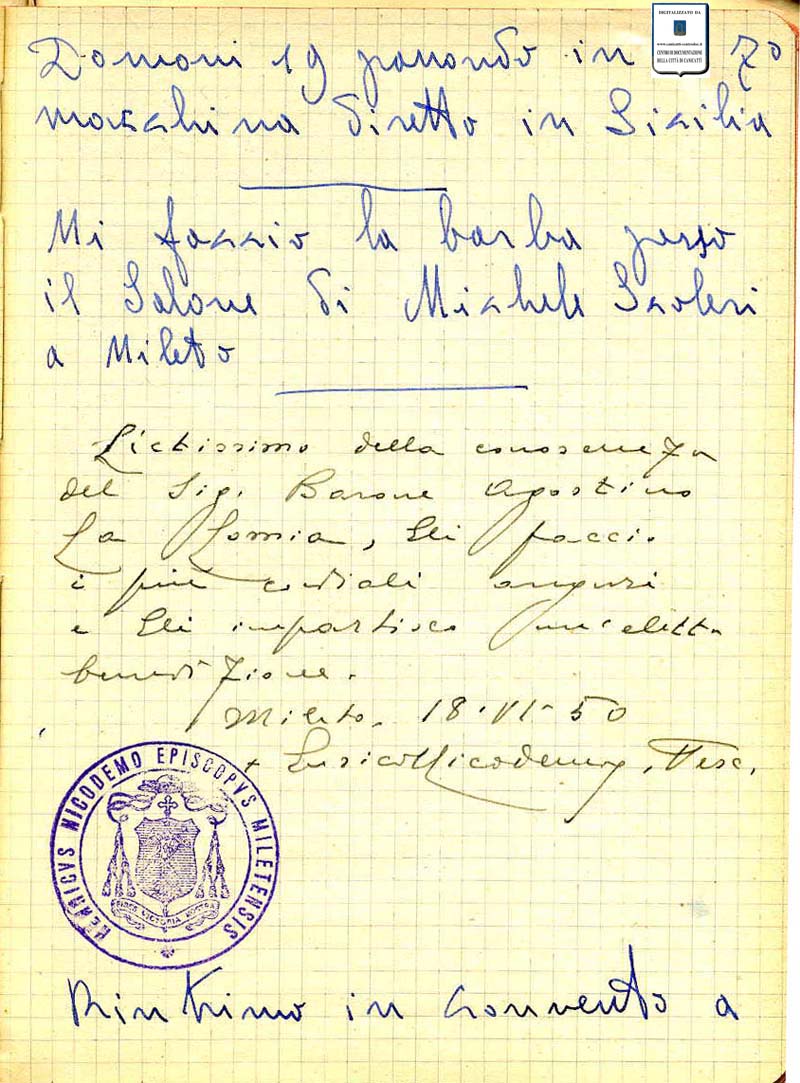 DIGITALIZZATO DA
CENTRO DI DOCUMENTAZIONE
DELLA CITTÀ DI CANICATTÌ
70
Domani 19 passando in
macchina diretto in Sicilia
Mi faccio la barba presso
il Salone di Michele Scoleri
a Mileto
Lietissimo della conoscenza
del Sig. Barone Agostino
La Lomia, Gli faccio
i più cordiali auguri
e Gli impartisco un'eletta
benedizione.
Mileto. 18.VI-50
+ Enrico Nicodemo, Vesc.
HENRICVS NICODEMO EPISCOPVS MILETENSIS
VICTORIA NOSTRA
Rintrimo in convento a